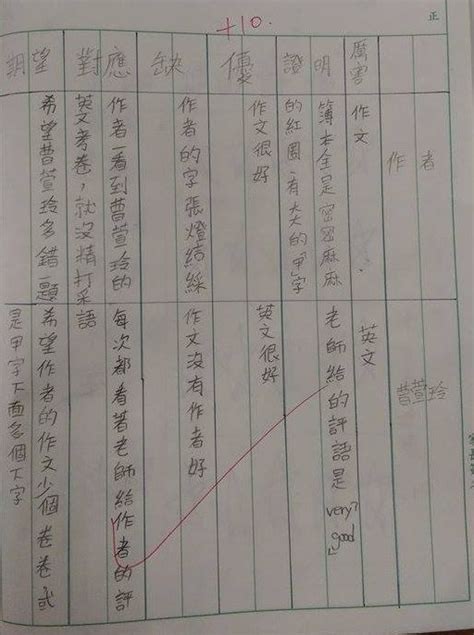 +10.
正
作者
曹萱玲
厲害
作文
英文
證明
簿本全是密密麻麻
的紅圈,有大的"甲"字
老師給的評語是
very good
優
作文很好
英文很好
缺
作者的字張燈結綵
作文沒有作者好
對應
作者一看到曹萱玲的
英文考卷,就沒精打采
每次都看著老師給作者的評
語
期望
希望曹萱玲多錯一題
希望作者的作文少個卷卷或
是甲字下面多個下字